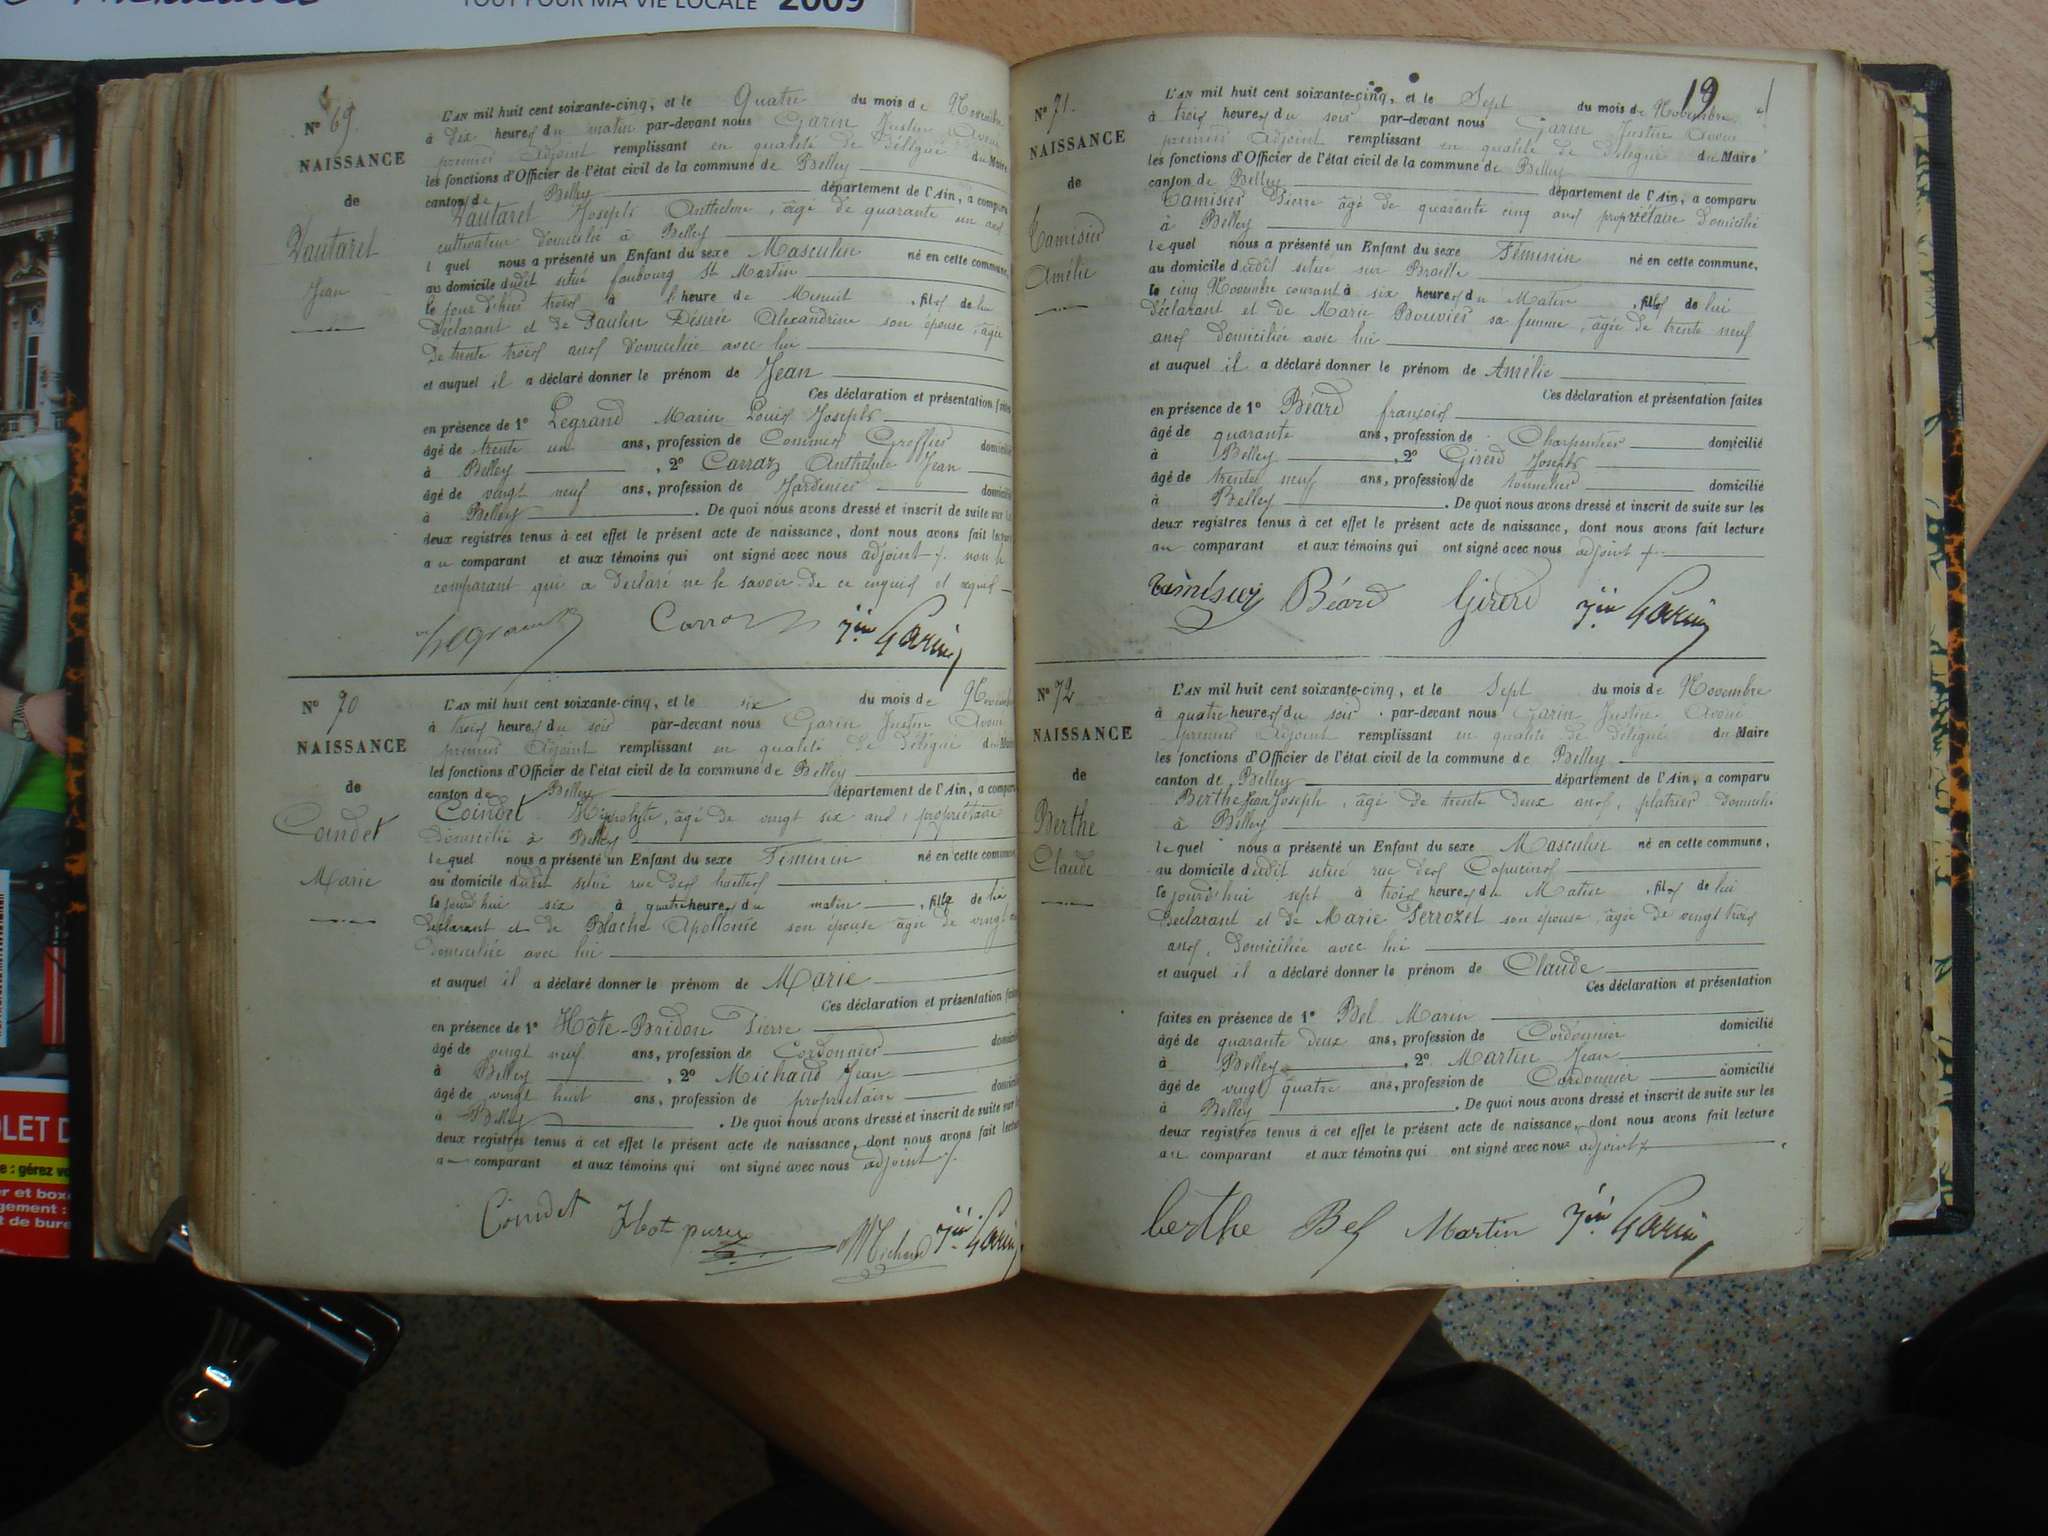 TOUT POUR MA VIE LOCALE 2009
N° 69.
NAISSANCE
de
Vautaret
Jean
L'AN mil huit cent soixante-cinq, et le Quatre du mois de Novembre
à dix heures du matin par-devant nous Garin Justin Avoué
premier adjoint remplissant en qualité de délégué du Maire
les fonctions d'Officier de l'état civil de la commune de Belley
canton de Belley département de l'Ain, a comparu
Vautaret Joseph Anthelme, âgé de quarante un ans
cultivateur domicilié à Belley
lequel nous a présenté un Enfant du sexe Masculin né en cette commune,
au domicile dudit situé faubourg St Martin
le jour d'hier trois à l'heure de Minuit, fils de lui
déclarant et de Paulin Désirée Alexandrine son épouse, âgée
de trente trois ans domiciliée avec lui
et auquel il a déclaré donner le prénom de Jean
Ces déclaration et présentation faites
en présence de 1° Legrand Marin Louis Joseph
âgé de trente un ans, profession de Commis Greffier domicilié
à Belley, 2° Carraz Anthelme Jean
âgé de vingt neuf ans, profession de Jardinier domicilié
à Belley. De quoi nous avons dressé et inscrit de suite sur les
deux registres tenus à cet effet le présent acte de naissance, dont nous avons fait lecture
au comparant et aux témoins qui ont signé avec nous adjoint /. non le
comparant qui a déclaré ne le savoir de ce enquis et requis
Legrand Carraz Jin Garin
N° 70
NAISSANCE
de
Coindet
Marie
L'AN mil huit cent soixante-cinq, et le six du mois de Novembre
à trois heures du soir par-devant nous Garin Justin Avoué
premier adjoint remplissant en qualité de délégué du Maire
les fonctions d'Officier de l'état civil de la commune de Belley
canton de Belley département de l'Ain, a comparu
Coindet Hippolyte, âgé de vingt six ans, propriétaire
domicilié à Belley
lequel nous a présenté un Enfant du sexe Féminin né en cette commune,
au domicile dudit situé rue des
le jourd'hui six à quatre heures du matin, fille de lui
déclarant et de Blache Apollonie son épouse âgée de vingt
domiciliée avec lui
et auquel il a déclaré donner le prénom de Marie
Ces déclaration et présentation faites
en présence de 1° Hôte-Bridon Pierre
âgé de vingt neuf ans, profession de Cordonnier domicilié
à Belley, 2° Michaud Jean
âgé de vingt huit ans, profession de propriétaire domicilié
à Belley. De quoi nous avons dressé et inscrit de suite sur les
deux registres tenus à cet effet le présent acte de naissance, dont nous avons fait lecture
au comparant et aux témoins qui ont signé avec nous adjoint /.
Coindet Hot Michaud Jin Garin
19
N° 71.
NAISSANCE
de
Tamisier
Amélie
L'AN mil huit cent soixante-cinq, et le Sept du mois de Novembre
à trois heures du soir par-devant nous Garin Justin Avoué
premier adjoint remplissant en qualité de délégué du Maire
les fonctions d'Officier de l'état civil de la commune de Belley
canton de Belley département de l'Ain, a comparu
Tamisier Pierre âgé de quarante cinq ans propriétaire domicilié
à Belley
lequel nous a présenté un Enfant du sexe Féminin né en cette commune,
au domicile dudit situé sur
le cinq Novembre courant à six heures du Matin, fille de lui
déclarant et de Marie Bouvier sa femme, âgée de trente neuf
ans domiciliée avec lui
et auquel il a déclaré donner le prénom de Amélie
Ces déclaration et présentation faites
en présence de 1° Béard françois
âgé de quarante ans, profession de Charpentier domicilié
à Belley, 2° Girerd Joseph
âgé de trente neuf ans, profession de tonnelier domicilié
à Belley. De quoi nous avons dressé et inscrit de suite sur les
deux registres tenus à cet effet le présent acte de naissance, dont nous avons fait lecture
au comparant et aux témoins qui ont signé avec nous adjoint
Béard Girerd Jin Garin
N° 72
NAISSANCE
de
Berthe
Claude
L'AN mil huit cent soixante-cinq, et le Sept du mois de Novembre
à quatre heures du soir par-devant nous Garin Justin Avoué
premier adjoint remplissant en qualité de délégué du Maire
les fonctions d'Officier de l'état civil de la commune de Belley
canton de Belley département de l'Ain, a comparu
Berthe Jean Joseph, âgé de trente deux ans, platrier domicilié
à Belley
lequel nous a présenté un Enfant du sexe Masculin né en cette commune,
au domicile dudit situé rue des Capucins
le jourd'hui sept à trois heures du Matin, fils de lui
déclarant et de Marie Perrozet son épouse âgée de vingt trois
ans, domiciliée avec lui
et auquel il a déclaré donner le prénom de Claude
Ces déclaration et présentation
faites en présence de 1° Bel Marin
âgé de quarante deux ans, profession de Cordonnier domicilié
à Belley, 2° Martin Jean
âgé de vingt quatre ans, profession de Cordonnier domicilié
à Belley. De quoi nous avons dressé et inscrit de suite sur les
deux registres tenus à cet effet le présent acte de naissance, dont nous avons fait lecture
au comparant et aux témoins qui ont signé avec nous adjoint
berthe Bel Martin Jin Garin